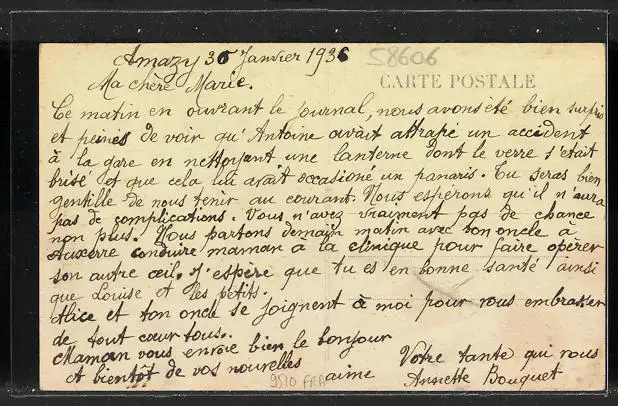 Amazy 30 Janvier 1936
58606
CARTE POSTALE
Ma chère Marie.
Ce matin en ouvrant le journal, nous avons été bien surpris
et peinés de voir qu'Antoine avait attrapé un accident
à la gare en nettoyant une lanterne dont le verre s'était
brisé et que cela lui avait occasioné un panaris. Tu seras bien
gentille de nous tenir au courant. Nous espérons qu'il n'aura
pas de complications. Vous n'avez vraiment pas de chance
non plus. Nous partons demain matin avec ton oncle à
Auxerre conduire maman à la clinique pour faire opérer
son autre œil. J'espère que tu es en bonne santé ainsi
que Louise et les petits.
Alice et ton oncle se joignent à moi pour vous embrasser
de tout cœur tous.
Maman vous envoie bien le bonjour
A bientôt de vos nouvelles
Votre tante qui vous
aime
Annette Bouquet
9510 FRA